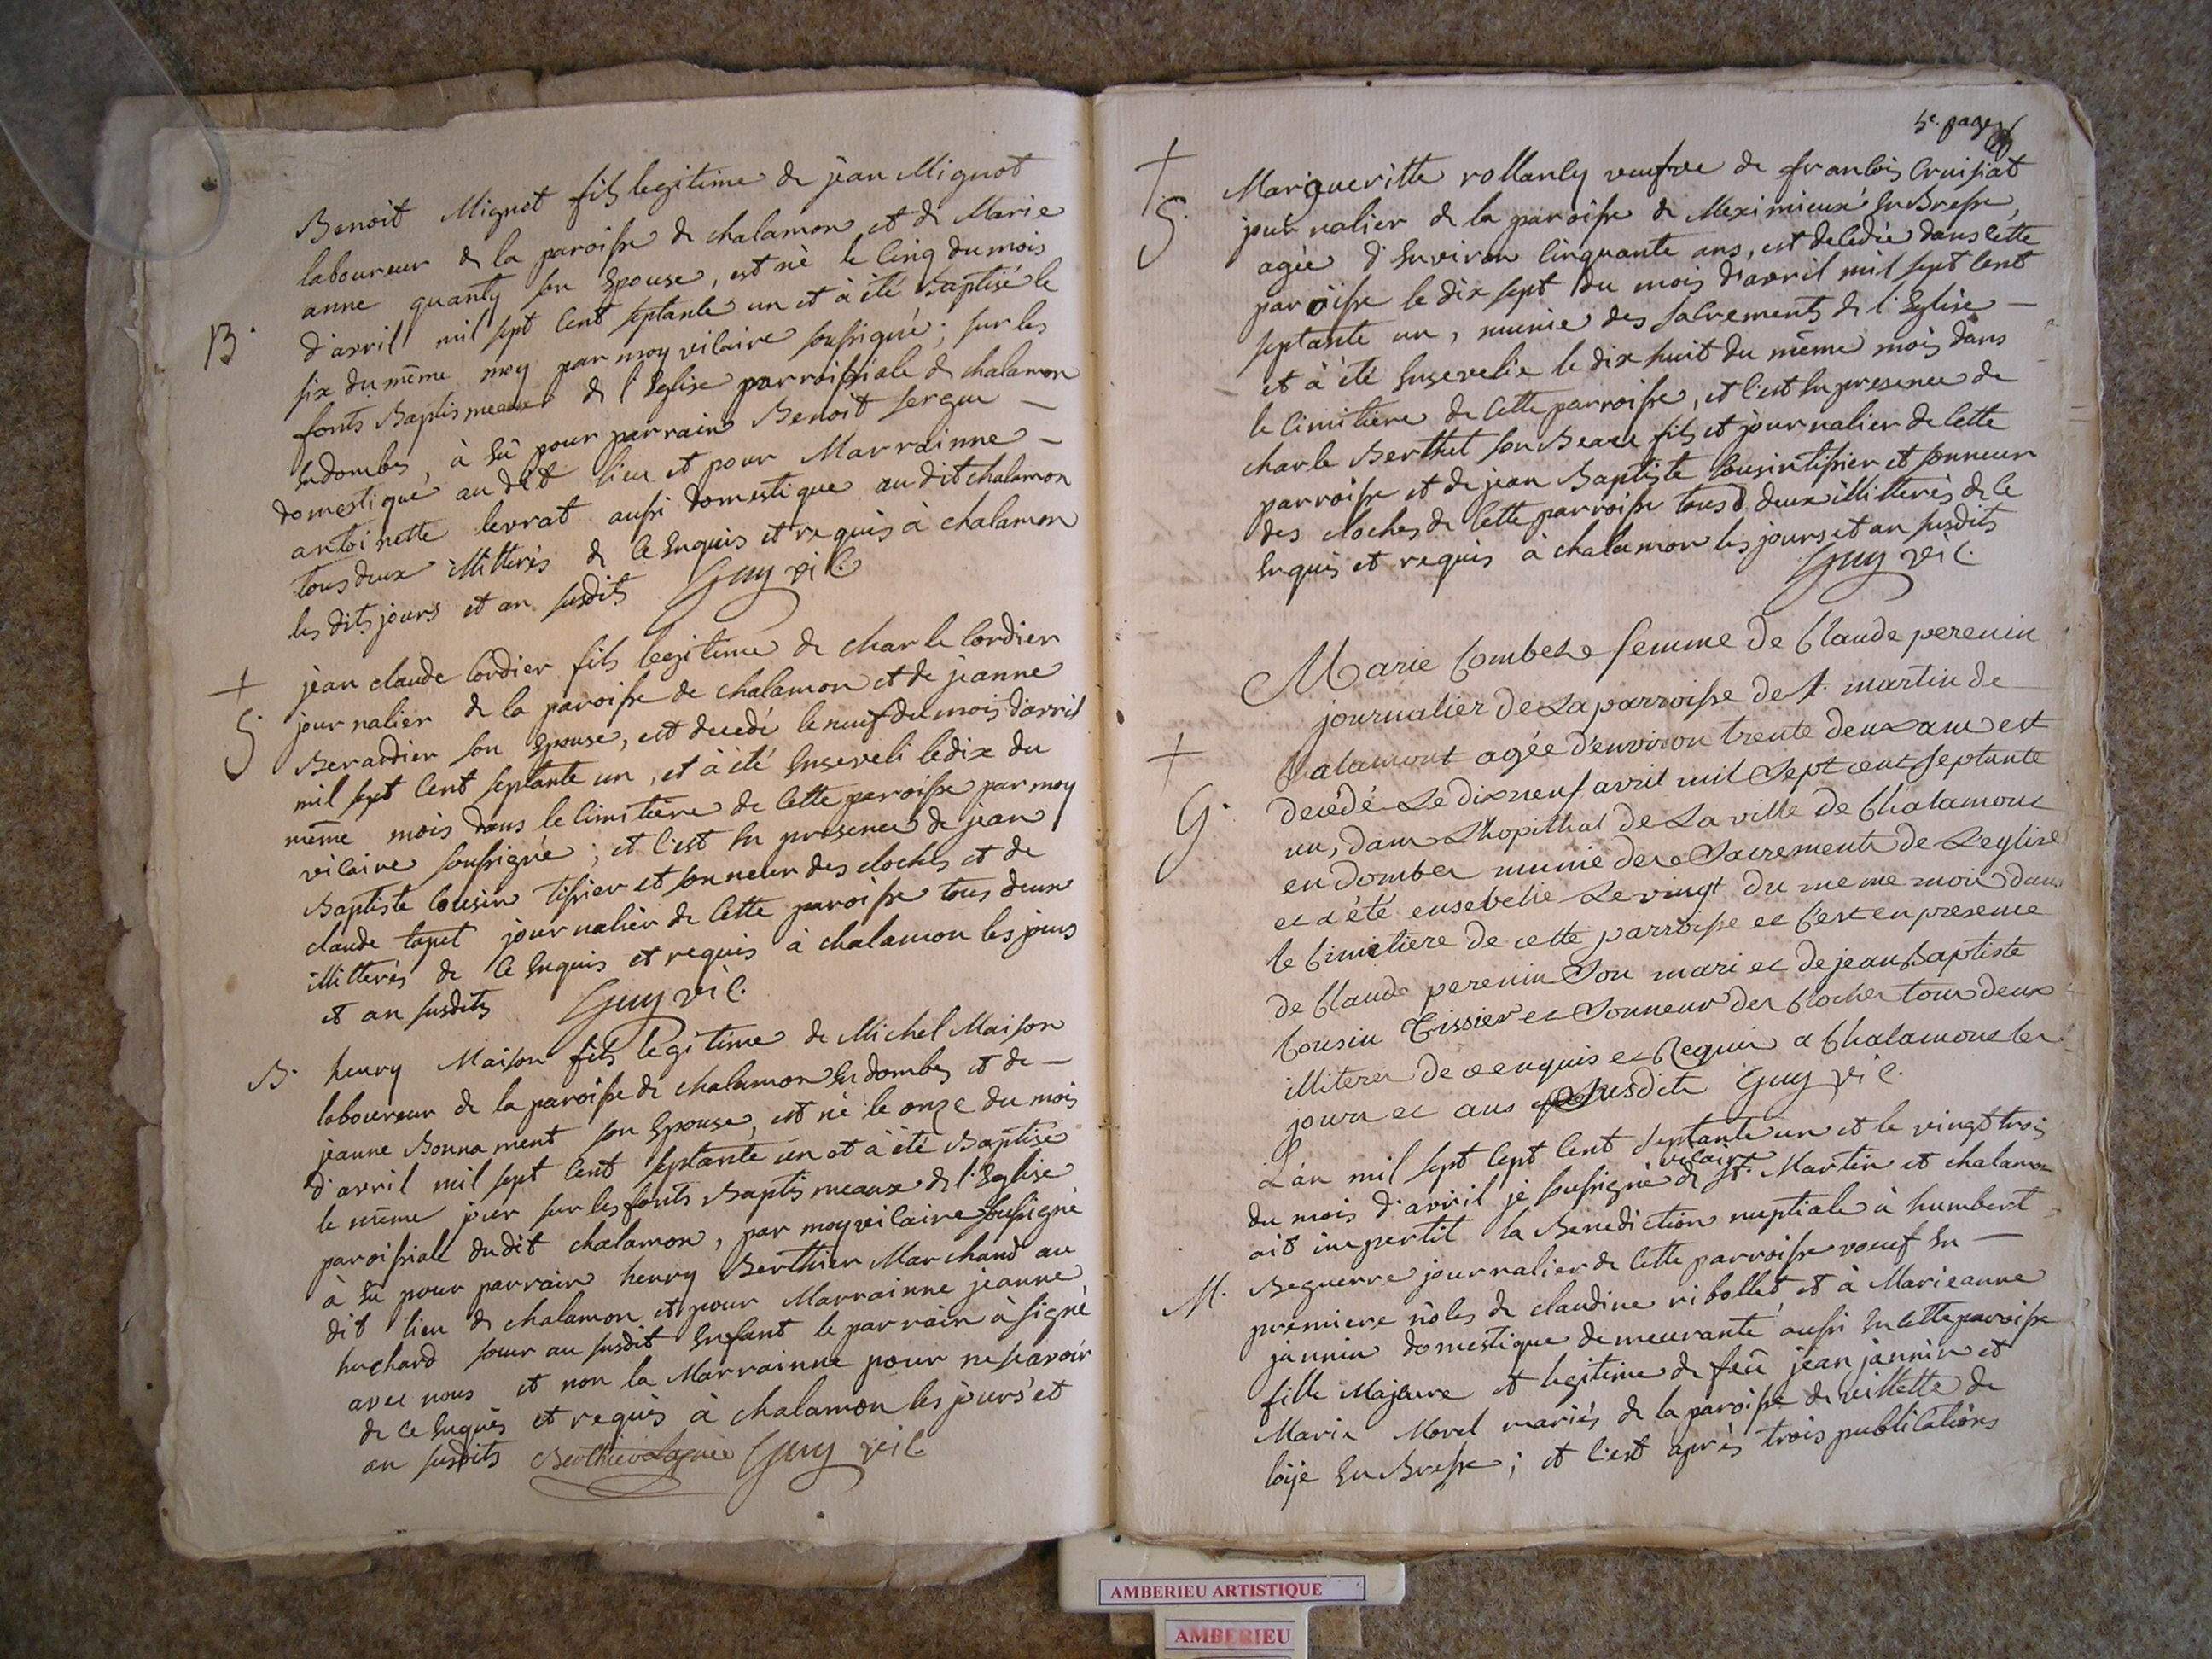 Benoit Mignot fils legitime de jean Mignot
laboureur de la paroisse de chalamon et de Marie
anne quanty son Epouse, est nè le Cinq du mois
B. d'avril mil sept Cent septante un et à été Baptisé le
six du même moy par moy vicaire soussigné; sur les
fonts Baptismeaux de l'Eglise parroissiale de chalamon
En dombes, à Eü pour parrain Benoit sergue
domestique au dit lieu et pour Marrainne
antoinette levrat aussi domestique au dit chalamon
tous deux illitterés de Ce Enquis et requis à chalamon
les dits jours et an susdits Guy vic.
+ jean claude Cordier fils legitime de charle Cordier
S. journalier de la paroisse de chalamon et de jeanne
Berardier son Epouse, est decedé le neuf du mois d'avril
mil sept Cent septante un, et à été Enseveli le dix du
même mois dans le Cimitière de Cette paroisse par moy
vicaire soussigné; et C'est En presence de jean
Baptiste Cousin tissier et sonneur des cloches et de
claude tapet journalier de Cette paroisse tous deux
illitterés de Ce Enquis et requis à chalamon les jours
et an susdits Guy vic.
B. henry Maison fils legitime de Michel Maison
laboureur de la paroisse de chalamon En dombes et de
jeanne Bonnament son Epouse, est nè le onze du mois
d'avril mil sept Cent septante un et à été Baptisé
le même jour sur les fonts Baptismeaux de l'Eglise
paroissiale du dit chalamon, par moy vicaire soussigné
à Eü pour parrain henry Berthier Marchand au
dit lieu de chalamon et pour Marrainne jeanne
huchard sœur au susdit Enfant le parrain à signé
avec nous et non la Marrainne pour ne sçavoir
de Ce Enquis et requis à chalamon les jours et
an susdits Berthier Guy vic
5e. page
+ Margueritte rollanly veufve de francois Cruisiat
S. journalier de la paroisse de Meximieux En Bresse,
agée d'Environ Cinquante ans, est decedée dans Cette
paroisse le dix sept du mois d'avril mil sept Cent
septante un, munie des sacrements de l'Eglise
et à été Ensevelie le dix huit du même mois dans
le Cimitiere de Cette parroisse, et C'est En presence de
charle Berthet son Beau fils et journalier de Cette
parroisse et de jean Baptiste Cousin tissier et sonneur
des cloches de Cette parroisse tous deux illitterés de Ce
Enquis et requis à chalamon les jours et an susdits
Guy vic.
Marie Combet femme de Claude perenin
journalier de La parroisse de st. martin de
+ Chalamont agée d'environ trente deux ans est
S. decédé Le dix neuf avril mil Sept cent septante
un, dans L'hopithal de La ville de Chalamont
en Dombes munie des Sacrements de L'eglise
et a été ensevelie Le vingt du meme mois dans
le Cimetiere de cette parroisse et C'est en presence
de Claude perenin Son mari et de jean Baptiste
Cousin Tissier et Sonneur des Cloches tous deux
illiteres de ce enquis et Requis a Chalamont les
jours et ans Susdits Guy vic.
L'an mil sept Cept Cent Septante un et le vingt trois
du mois d'avril je soussigné vicaire de St. Martin et chalamon
ait impertit la Benediction nuptiale à humbert
M. Beguerre journalier de Cette parroisse voeuf En
premiere nôces de claudine ribollet et à Marieanne
jannin domestique demeurante aussi En Cette paroisse
fille Majeure et legitime de feü jean jannin et
Marie Morel mariés de la paroisse de villette de
loije En Bresse; et C'est après trois publications
AMBERIEU ARTISTIQUE
AMBERIEU